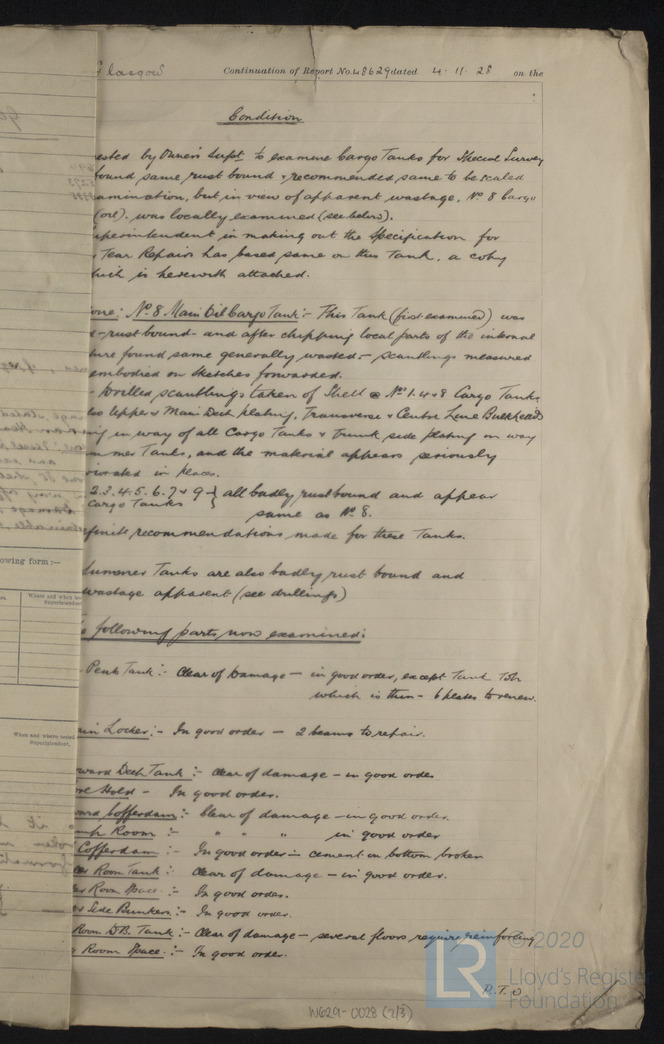 Glasgow Continuation of Report No. 48629 dated 4. 11. 28 on the
Condition
ested by Owners Supt to examine Cargo Tanks for Special Survey
found same rust bound & recommended same to be scaled
amination, but in view of apparent wastage, No 8 Cargo
(oil). was locally examined (see below).
uperintendent in making out the Specification for
Tear Repairs has based same on this Tank, a copy
hich is herewith attached.
one: No 8 Main Oil Cargo Tank:- This Tank (first examined) was
rust bound - and after chipping local parts of the internal
ure found same generally wasted - scantlings measured
embodied on Sketches forwarded.
- Drilled scantlings taken of Shell @ No 1. 4 & 8 Cargo Tanks
Upper & Main Deck plating, Transverse & Center Line Bulkheads
ing in way of all Cargo Tanks & Trunk side plating in way
mer Tanks, and the material appears seriously
in places.
2. 3. 4. 5. 6. 7 & 9 } all badly rust bound and appear
Cargo Tanks same as No 8.
efinite recommendations made for these Tanks.
Summer Tanks are also badly rust bound and
wastage apparent (see drillings)
following parts now examined:
Peak Tank:- Clear of Damage - in good order, except Tank Top
which is thin - 6 plates to renew.
ain Locker:- In good order - 2 beams to repair.
ward Deep Tank:- Clear of damage - in good order
re Hold - In good order.
ward Cofferdam:- Clear of damage - in good order.
mp Room:- " " " in good order
Cofferdam:- In good order - cement on bottom broken
er Room Tank:- Clear of damage - in good order.
er Room Space:- In good order.
er Side Bunkers:- In good order.
Room D.B. Tank:- Clear of damage - several floors require reinforcing
Room Space:- In good order.
P.T.O
owing form :—
Where and when tes
Superintendent.
When and where tested
Superintendent.
LR © 2020
Lloyd's Register
Foundation
W629-0028 (2/3)